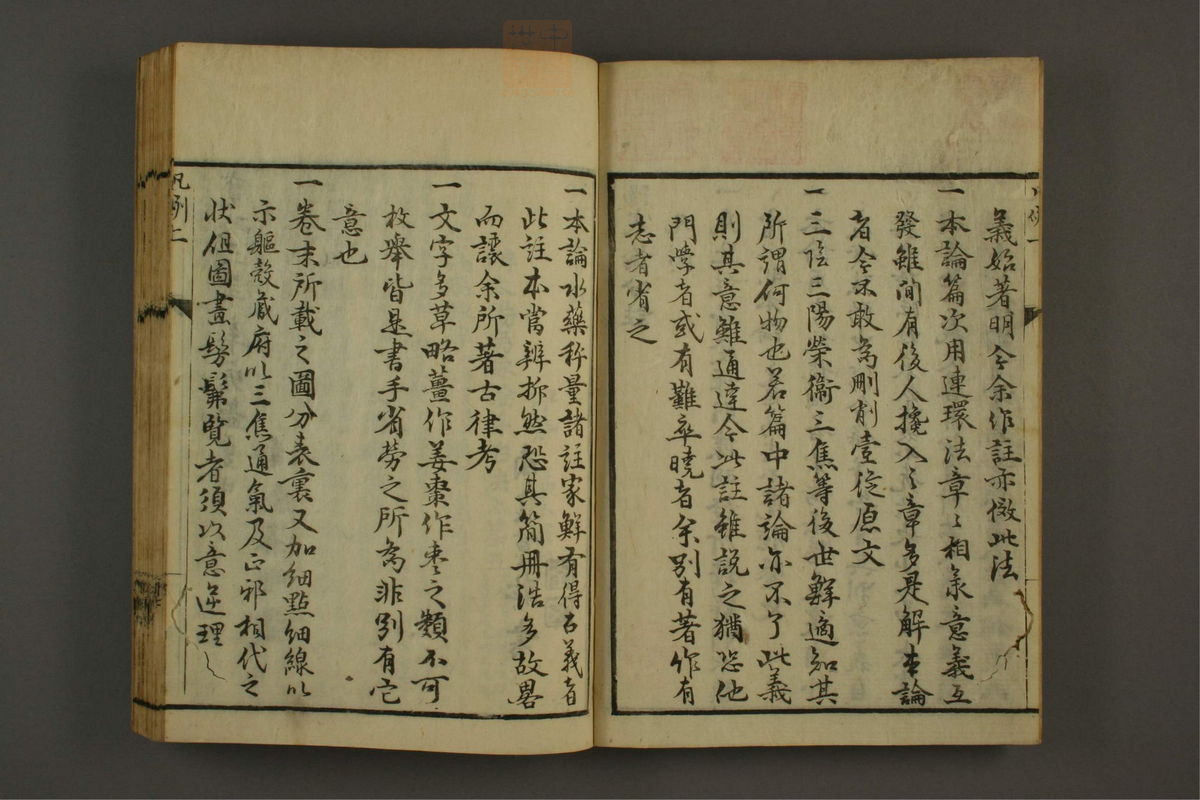 義始著明今余作註亦倣此法
一本論篇次用連環法章〻相承意義互
發雖間有後人攙入之章多是解本論
者今不敢為刪削壹從原文
一三陰三陽榮衛三焦等後世鮮適知其
所謂何物也若篇中諸論亦不了此義
則其意難通達今此註雖説之猶恐他
門學者或有難卒曉者余別有著作有
志者省之
一本論水藥秤量諸註家鮮有得古義者
此註本當辨拆然恐其簡冊浩多故畧
而讓余所著古律考
一文字多草略薑作姜棗作枣之類不可
枚舉皆是書手省勞之所為非別有它
意也
一卷末所載之圖分表裏又加細點細線以
示軀殼藏府以三焦通氣及正邪相代之
状但圖畫髣髴覽者須以意逆理
凡例二